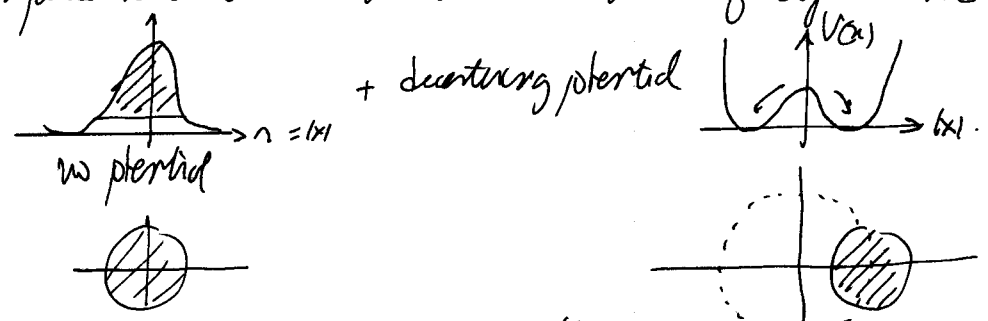 V(x)
+ decentering potential
r = |x|
|x|.
no potential